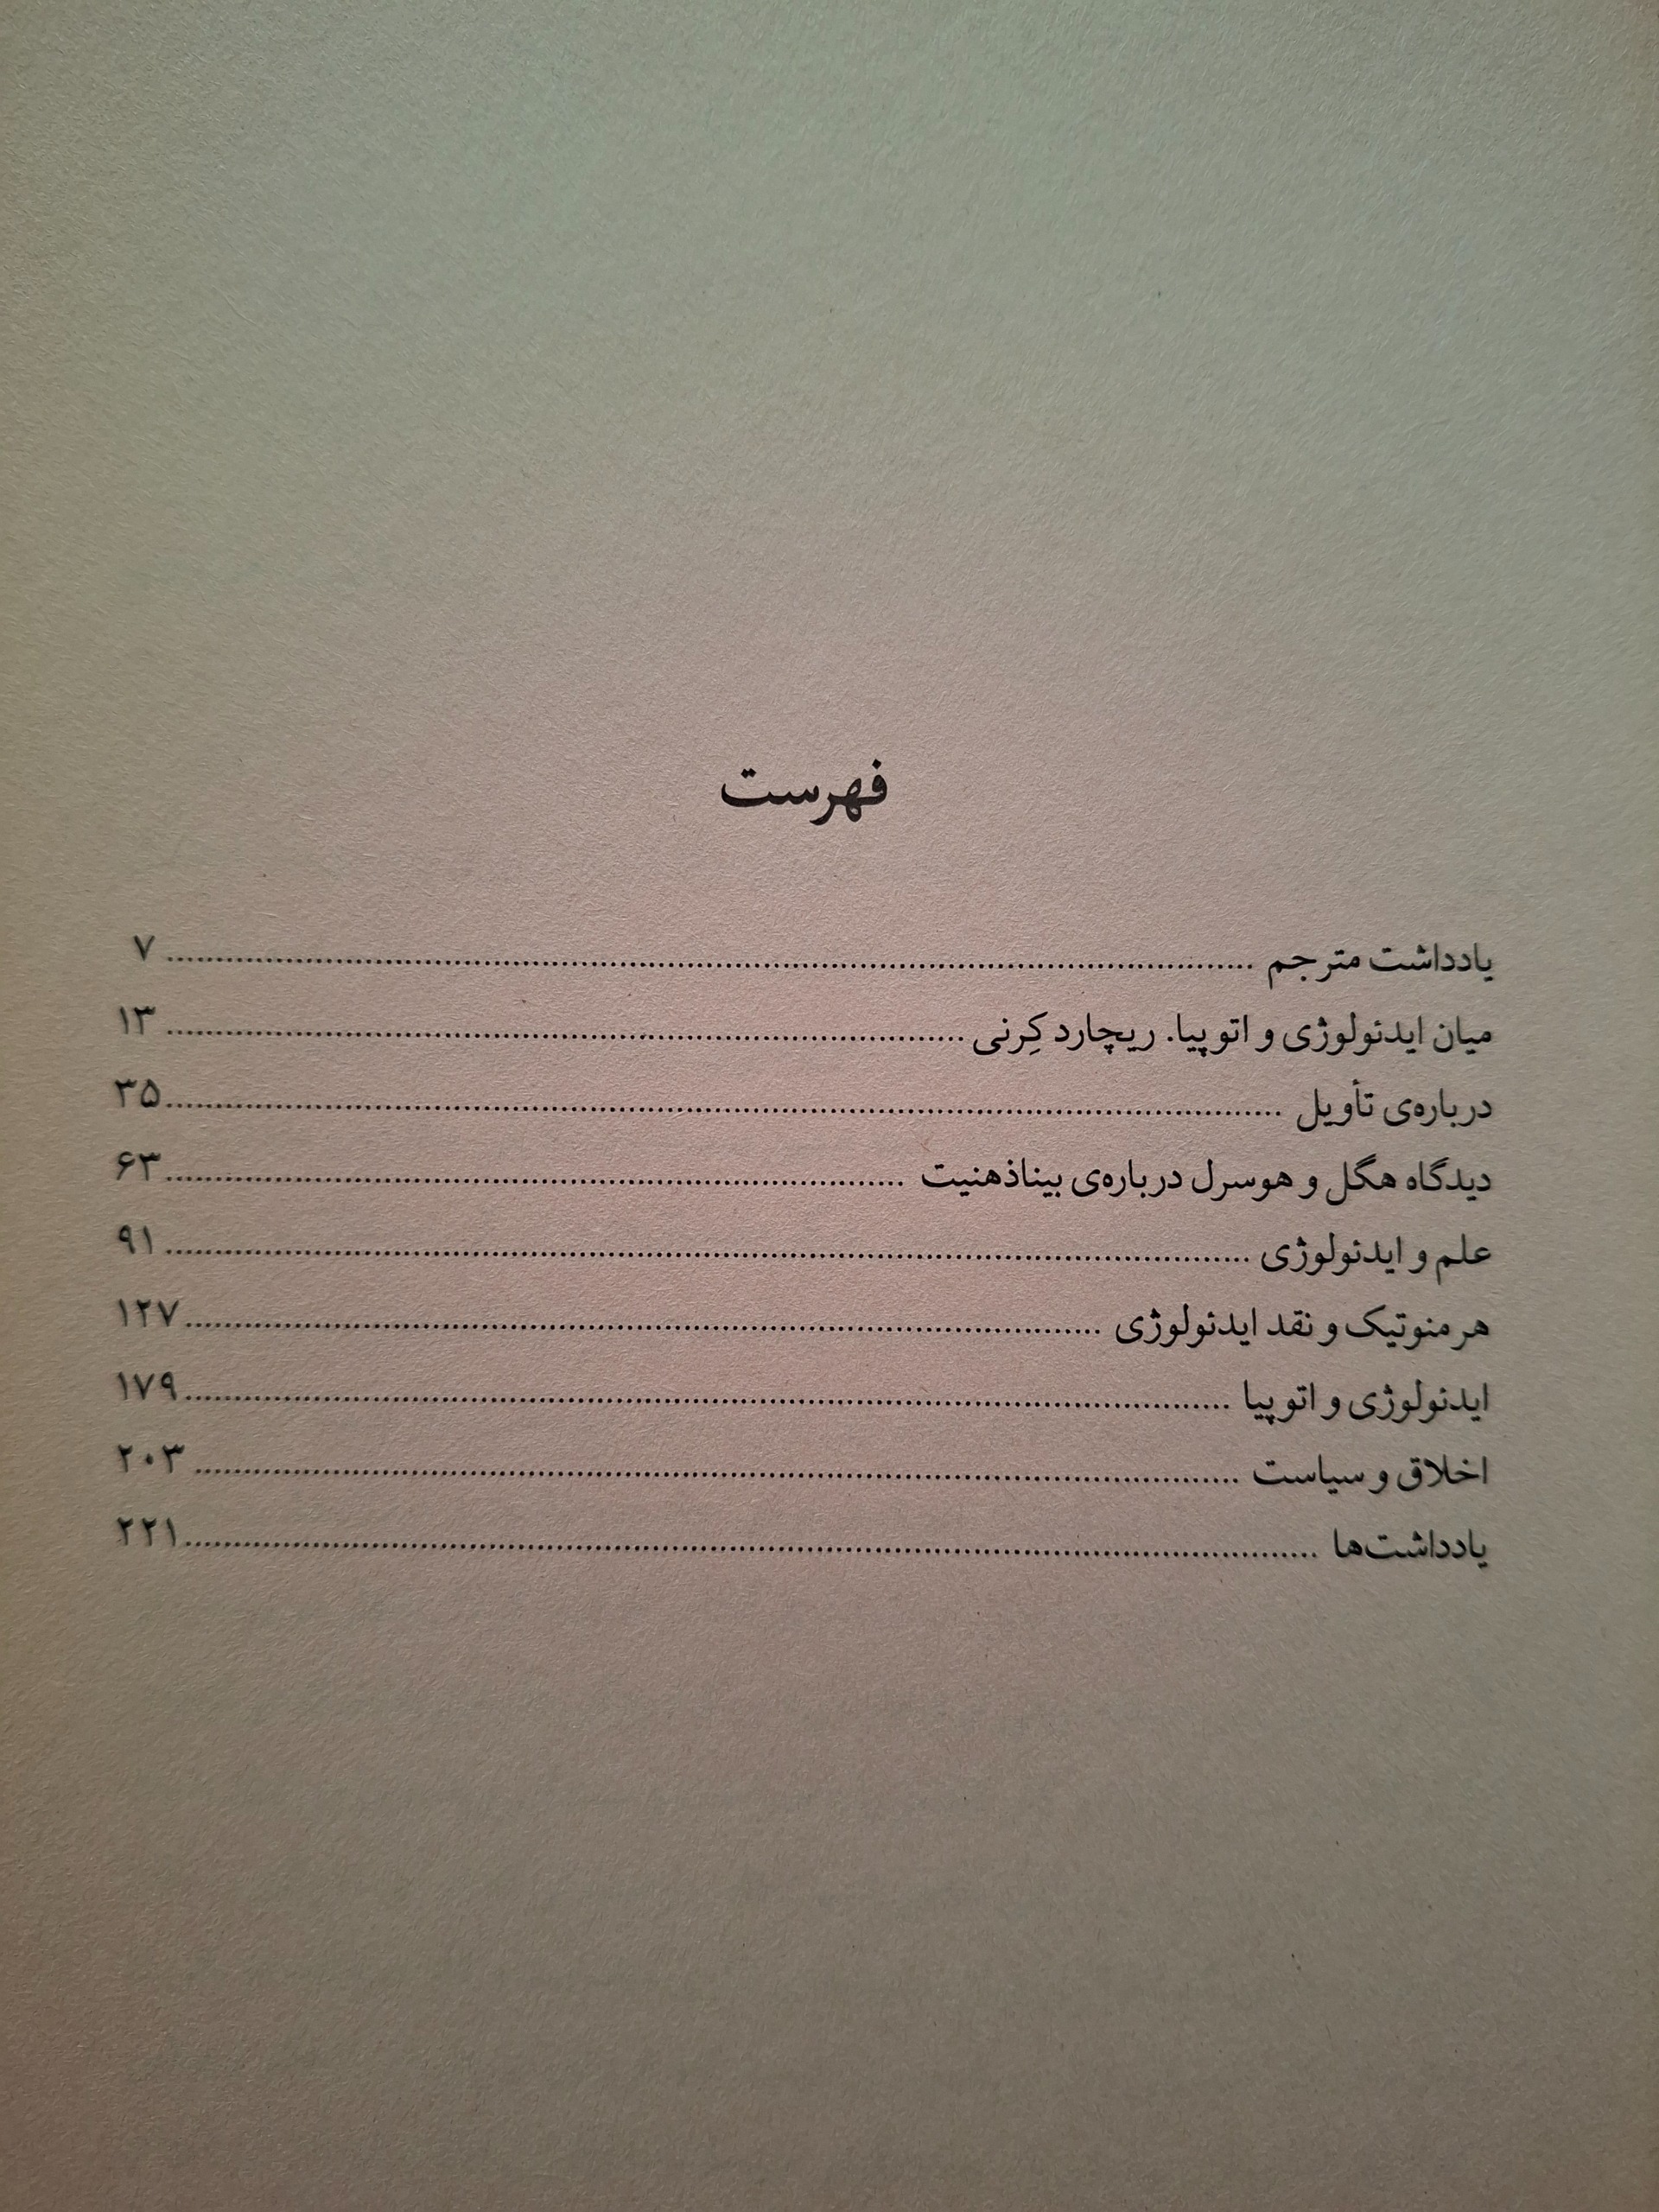 فهرست
یادداشت مترجم ........................................ ۷
میان ایدئولوژی و اتوپیا. ریچارد کِرنی ........................................ ۱۳
درباره‌ی تأویل ........................................ ۳۵
دیدگاه هگل و هوسرل درباره‌ی بیناذهنیت ........................................ ۶۳
علم و ایدئولوژی ........................................ ۹۱
هرمنوتیک و نقد ایدئولوژی ........................................ ۱۲۷
ایدئولوژی و اتوپیا ........................................ ۱۷۹
اخلاق و سیاست ........................................ ۲۰۳
یادداشت‌ها ........................................ ۲۲۱